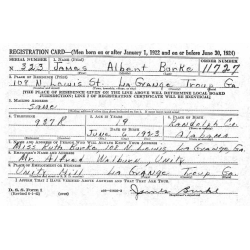 REGISTRATION CARD—(Men born on or after January 1, 1922 and on or before June 30, 1924)
SERIAL NUMBER 1. NAME (Print) ORDER NUMBER
N 323 James Albert Burke 11727
2. PLACE OF RESIDENCE (Print)
109 N. Lewis St. LaGrange Troup Ga.
(THE PLACE OF RESIDENCE GIVEN ON THE LINE ABOVE WILL DETERMINE LOCAL BOARD
JURISDICTION; LINE 2 OF REGISTRATION CERTIFICATE WILL BE IDENTICAL)
3. MAILING ADDRESS
Same
4. TELEPHONE 5. AGE IN YEARS 6. PLACE OF BIRTH
937R 19 Randolph Co.
DATE OF BIRTH
June 1923 Alabama
7. NAME AND ADDRESS OF PERSON WHO WILL ALWAYS KNOW YOUR ADDRESS
Miss Ruth Burke 108 N Lewis LaGrange Ga.
8. EMPLOYER'S NAME AND ADDRESS
Mr. Alfred
9. PLACE OF EMPLOYMENT OR BUSINESS
Unity Mill LaGrange Troup Ga.
I AFFIRM THAT I HAVE VERIFIED ABOVE ANSWERS AND THAT THEY ARE TRUE.
D. S. S. Form 1
James Burke